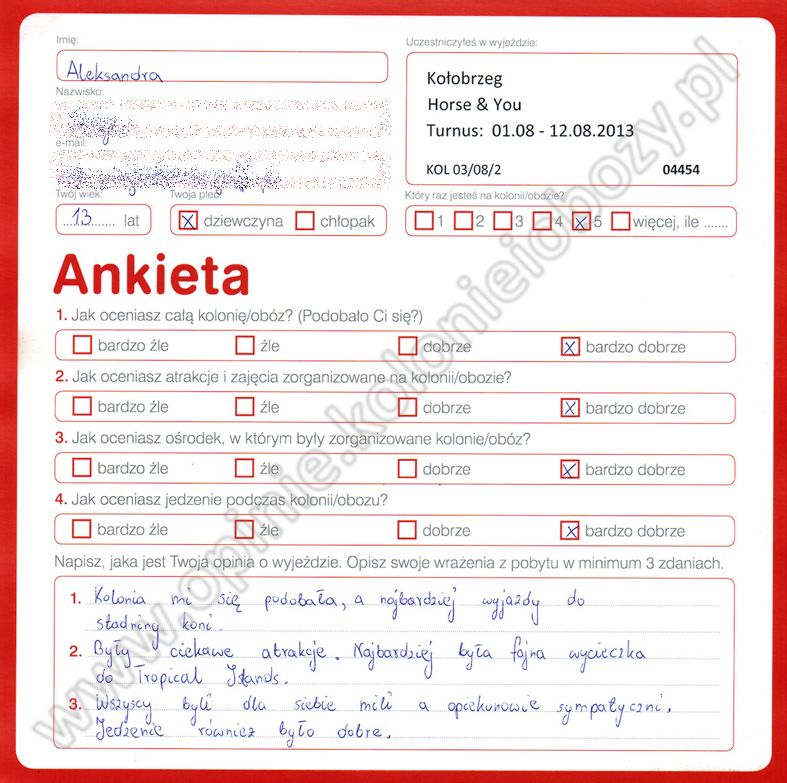 Imię:
Aleksandra
Nazwisko:
e-mail:
Twój wiek:
13 lat
Twoja płeć:
dziewczyna chłopak
Uczestniczyłeś w wyjeździe:
Kołobrzeg
Horse & You
Turnus: 01.08 - 12.08.2013
KOL 03/08/2 04454
Który raz jesteś na kolonii/obozie?
1 2 3 4 5 więcej, ile .......
Ankieta
1. Jak oceniasz całą kolonię/obóz? (Podobało Ci się?)
bardzo źle źle dobrze bardzo dobrze
2. Jak oceniasz atrakcje i zajęcia zorganizowane na kolonii/obozie?
bardzo źle źle dobrze bardzo dobrze
3. Jak oceniasz ośrodek, w którym były zorganizowane kolonie/obóz?
bardzo źle źle dobrze bardzo dobrze
4. Jak oceniasz jedzenie podczas kolonii/obozu?
bardzo źle źle dobrze bardzo dobrze
Napisz, jaka jest Twoja opinia o wyjeździe. Opisz swoje wrażenia z pobytu w minimum 3 zdaniach.
1. Kolonia mi się podobała, a najbardziej wyjazdy do
stadniny koni.
2. Były ciekawe atrakcje. Najbardziej była fajna wycieczka
do Tropical Islands.
3. Wszyscy byli dla siebie mili a opiekunowie sympatyczni.
Jedzenie również było dobre.
www.opinie.kolonieiobozy.pl